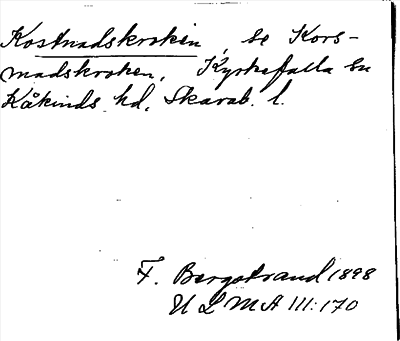 Kostnadskroken, se Kors-
madskroken, Kyrkefalla sn
Kåkinds hd, Skarab. l.
F. Bergstrand 1898
ULMA 111:170